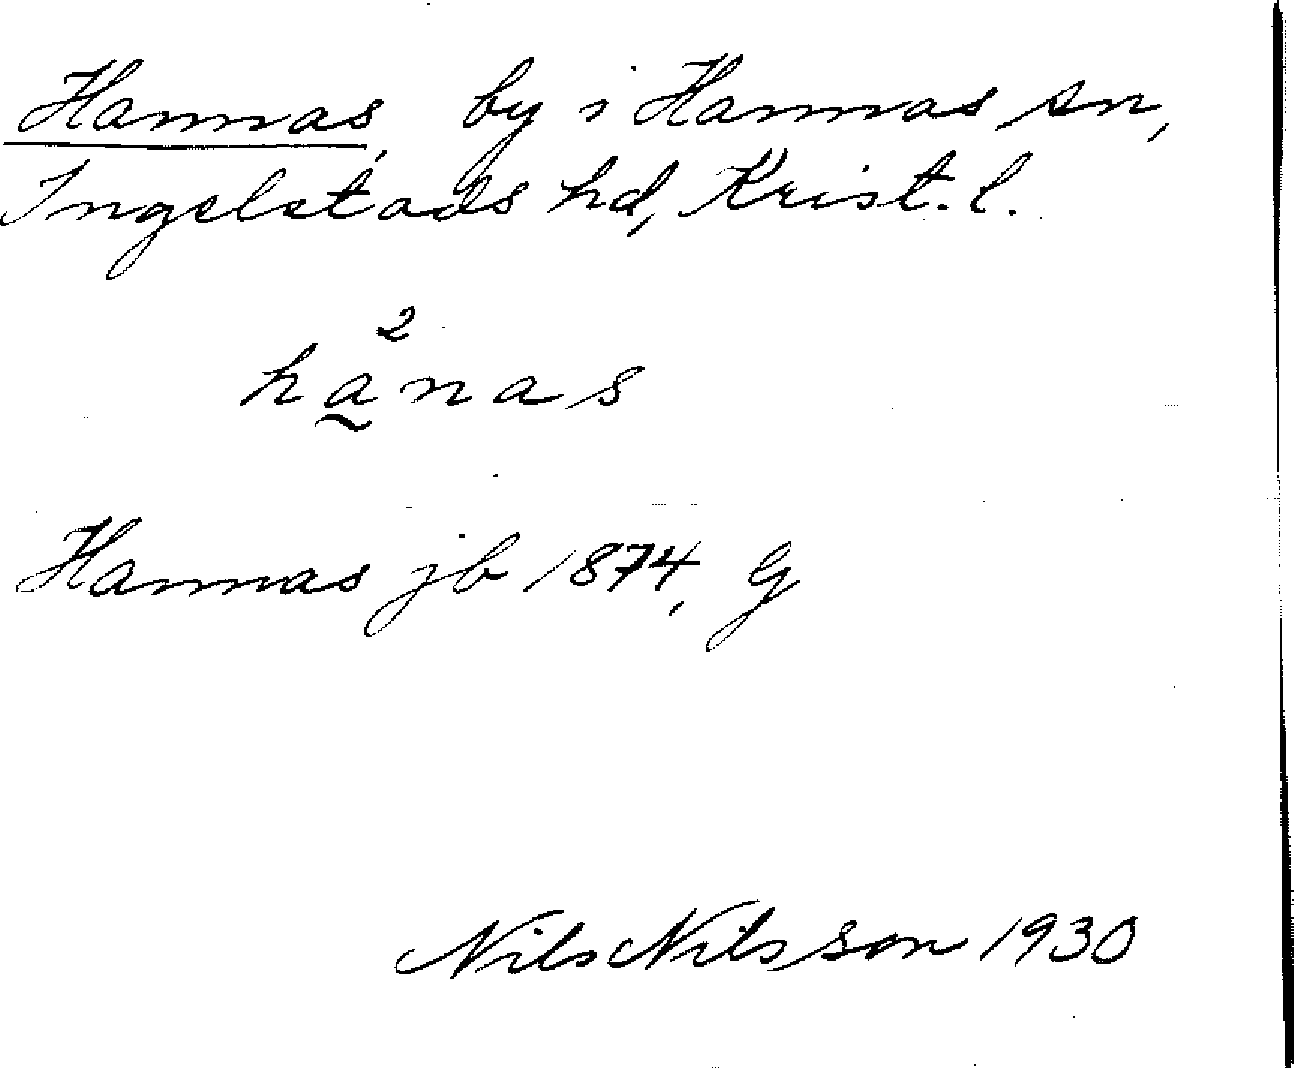 Hannas, by i Hannas sn,
Ingelstads hd, Krist. l.
2
ha̰nas
Hannas jb 1874, G
Nils Nilsson 1930